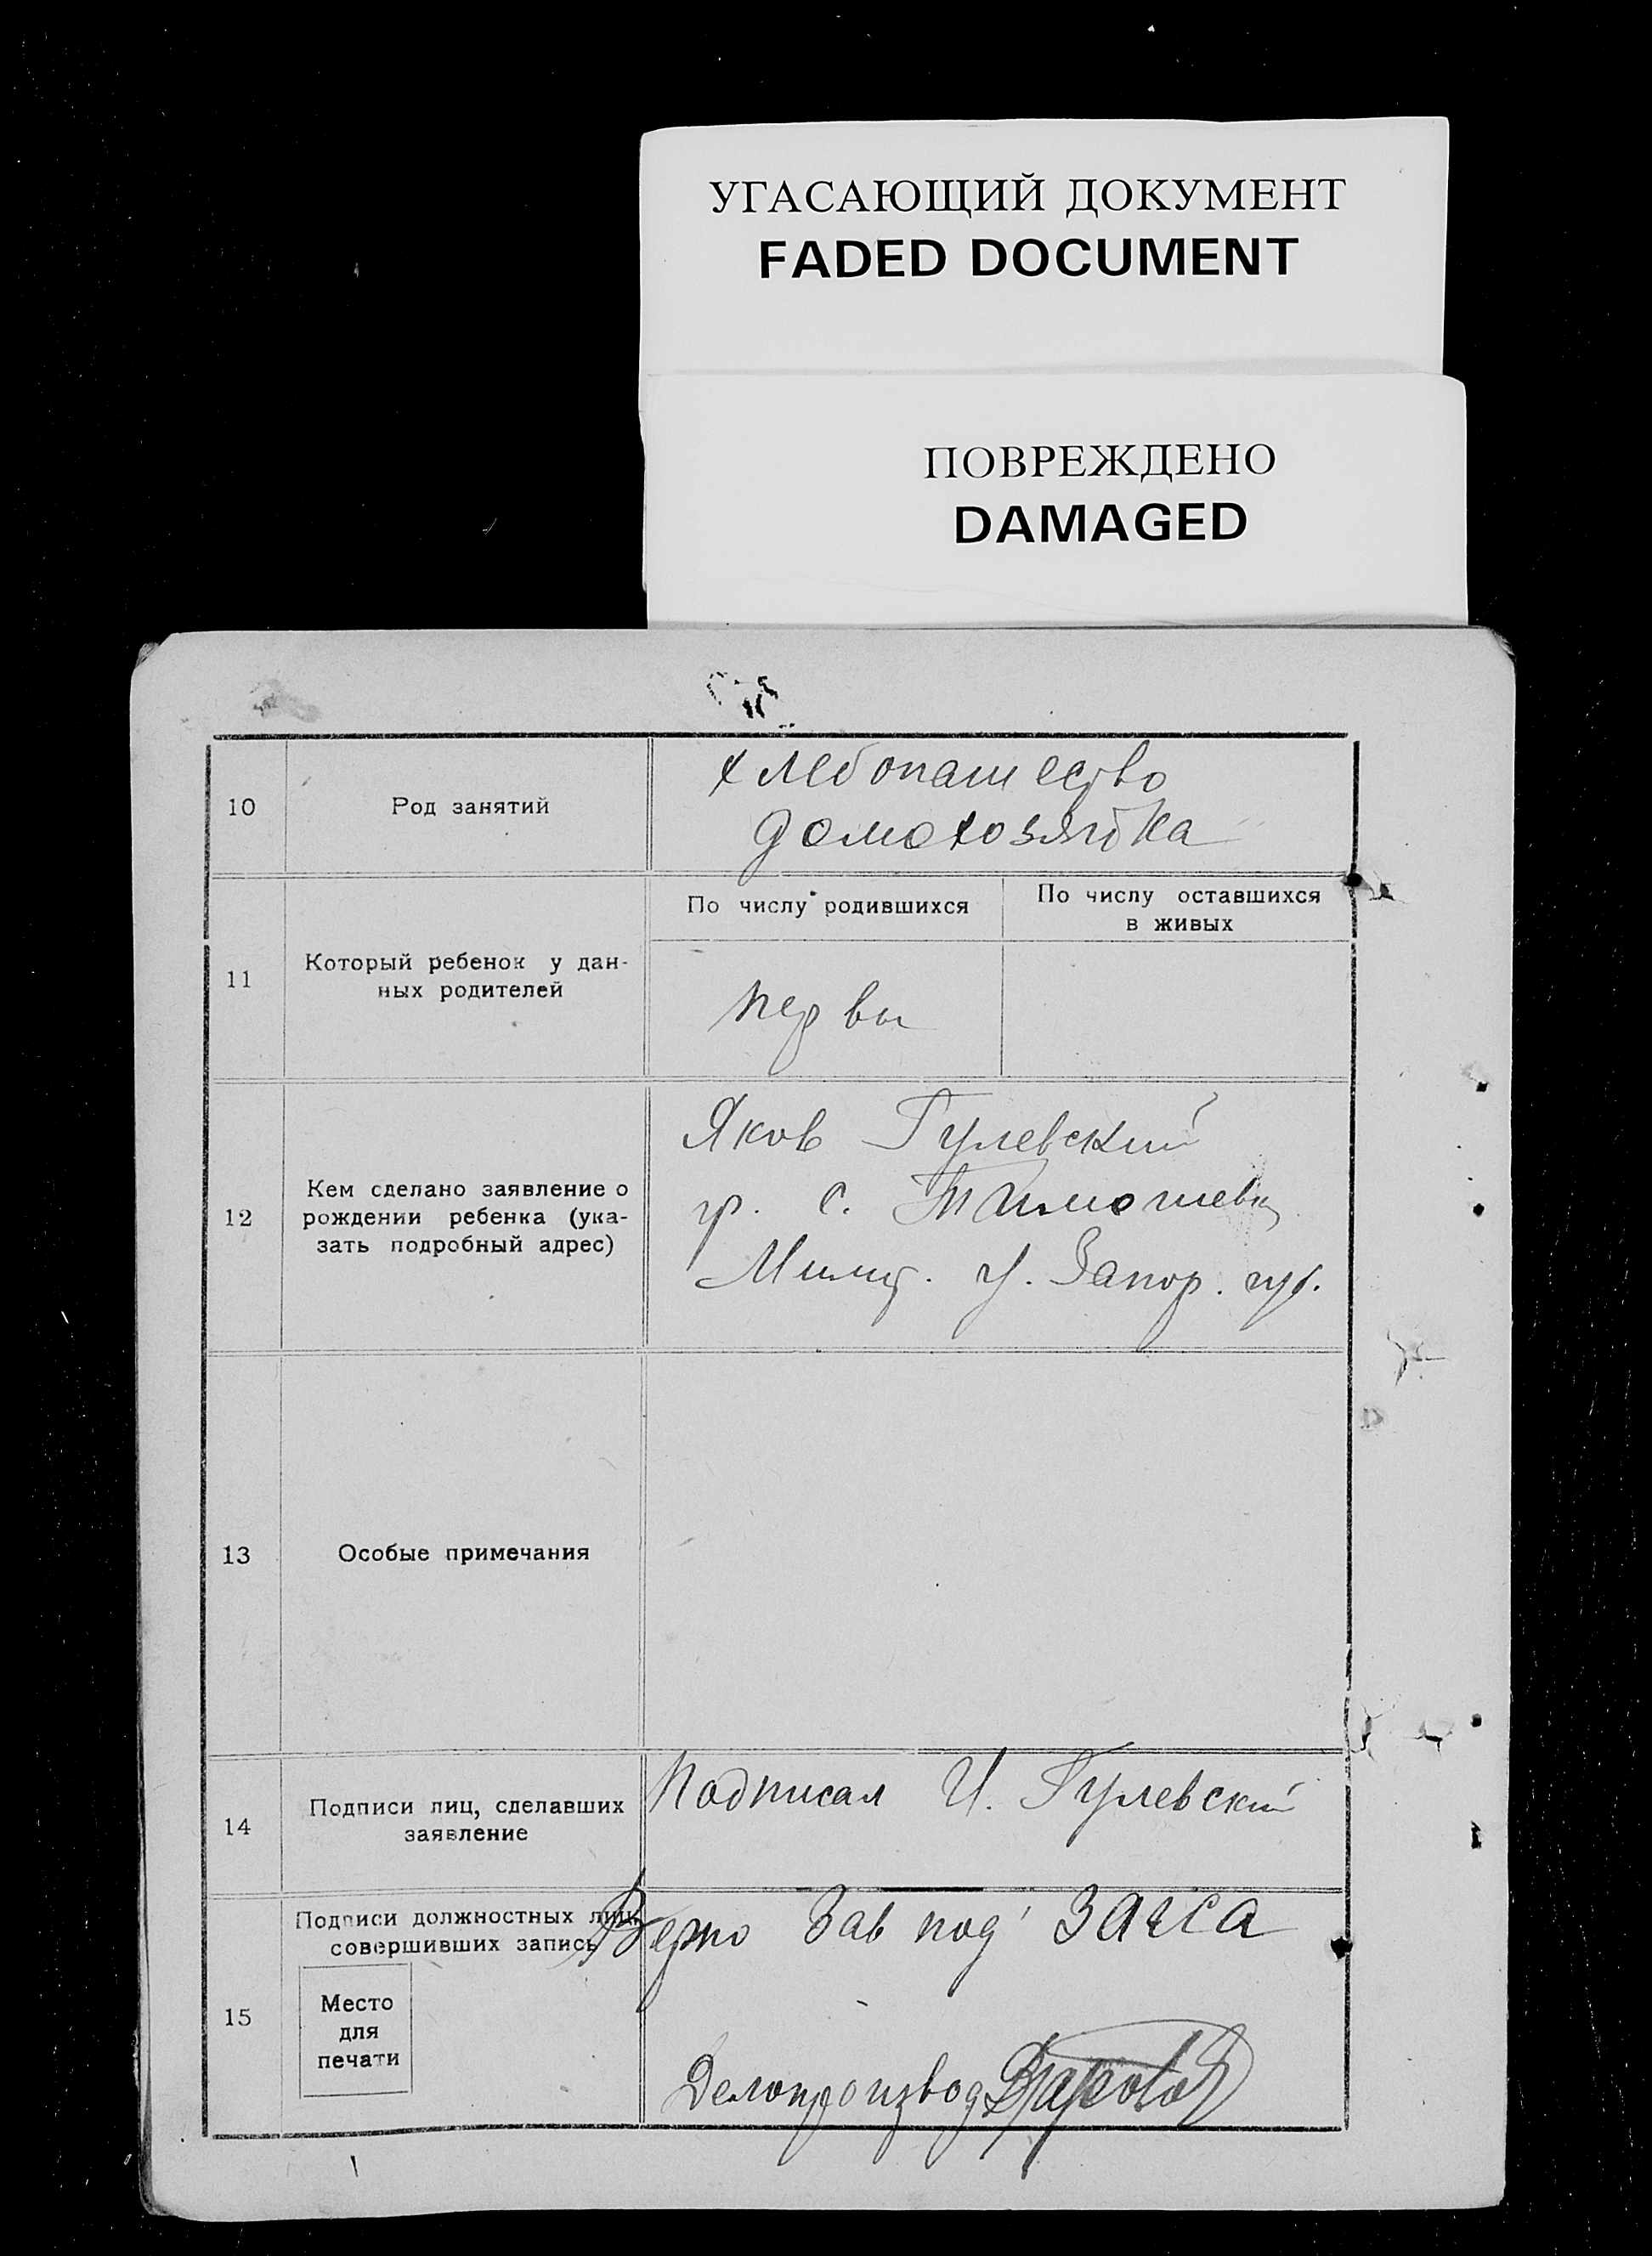 УГАСАЮЩИЙ ДОКУМЕНТ
FADED DOCUMENT
ПОВРЕЖДЕНО
DAMAGED
10
Род занятий
хлебопашество
домохозяйка
11
Который ребенок у дан-
ных родителей
По числу родившихся
По числу оставшихся
в живых
первы
12
Кем сделано заявление о
рождении ребенка (ука-
зать подробный адрес)
Яков Гулевский
гр. с. Тимошевки
У. Запор. губ.
13
Особые примечания
14
Подписи лиц, сделавших
заявление
Подписал И. Гулевский
15
Подписи должностных лиц,
совершивших запись
Место
для
печати
Верно Зав под ЗАГСА
Делопроизвод